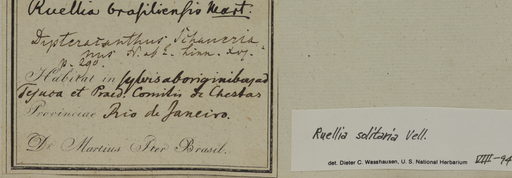 Ruellia brasiliensis Mart.
Dipteracanthus Schauerianus N. ab E. Linn. XVI.
p. 290.
Habitat in sylvis aboriginibus ad
Tejuca et Praed. Comitis de Chestas
Provinciae Rio de Janeiro.
De Martius Iter Brasil.
Ruellia solitaria Vell.
det. Dieter C. Wasshausen, U. S. National Herbarium VIII-94